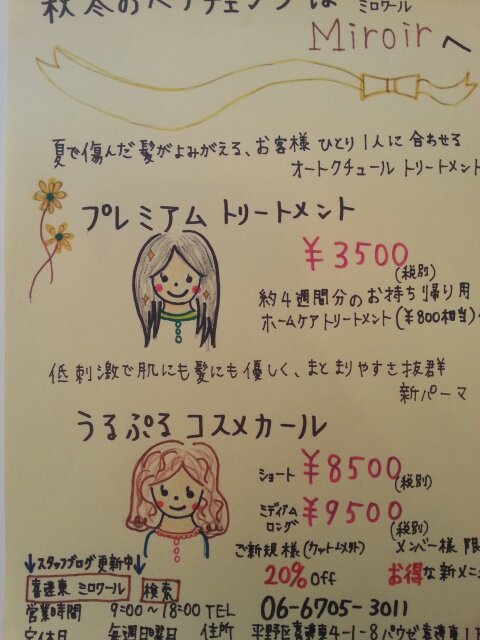 秋冬のヘアチェンジは ミロワール
Miroirへ
夏で傷んだ髪がよみがえる、お客様ひとり1人に合わせる
オートクチュールトリートメント
プレミアムトリートメント
¥3500
(税別)
約4週間分のお持ち帰り用
ホームケアトリートメント(¥800相当)
低刺激で肌にも髪にも優しく、まとまりやすさ抜群
新パーマ
うるぷるコスメカール
ショート ¥8500
(税別)
ミディアム ロング ¥9500
(税別)
↓スタッフブログ更新中↓
ご新規様(カットのみ以外) メンバー様 限
喜連東 ミロワール 検索
20%Off お得な新メニ
営業時間 9:00〜18:00 TEL 06-6705-3011
定休日 毎週日曜日 住所 平野区喜連東4-1-8